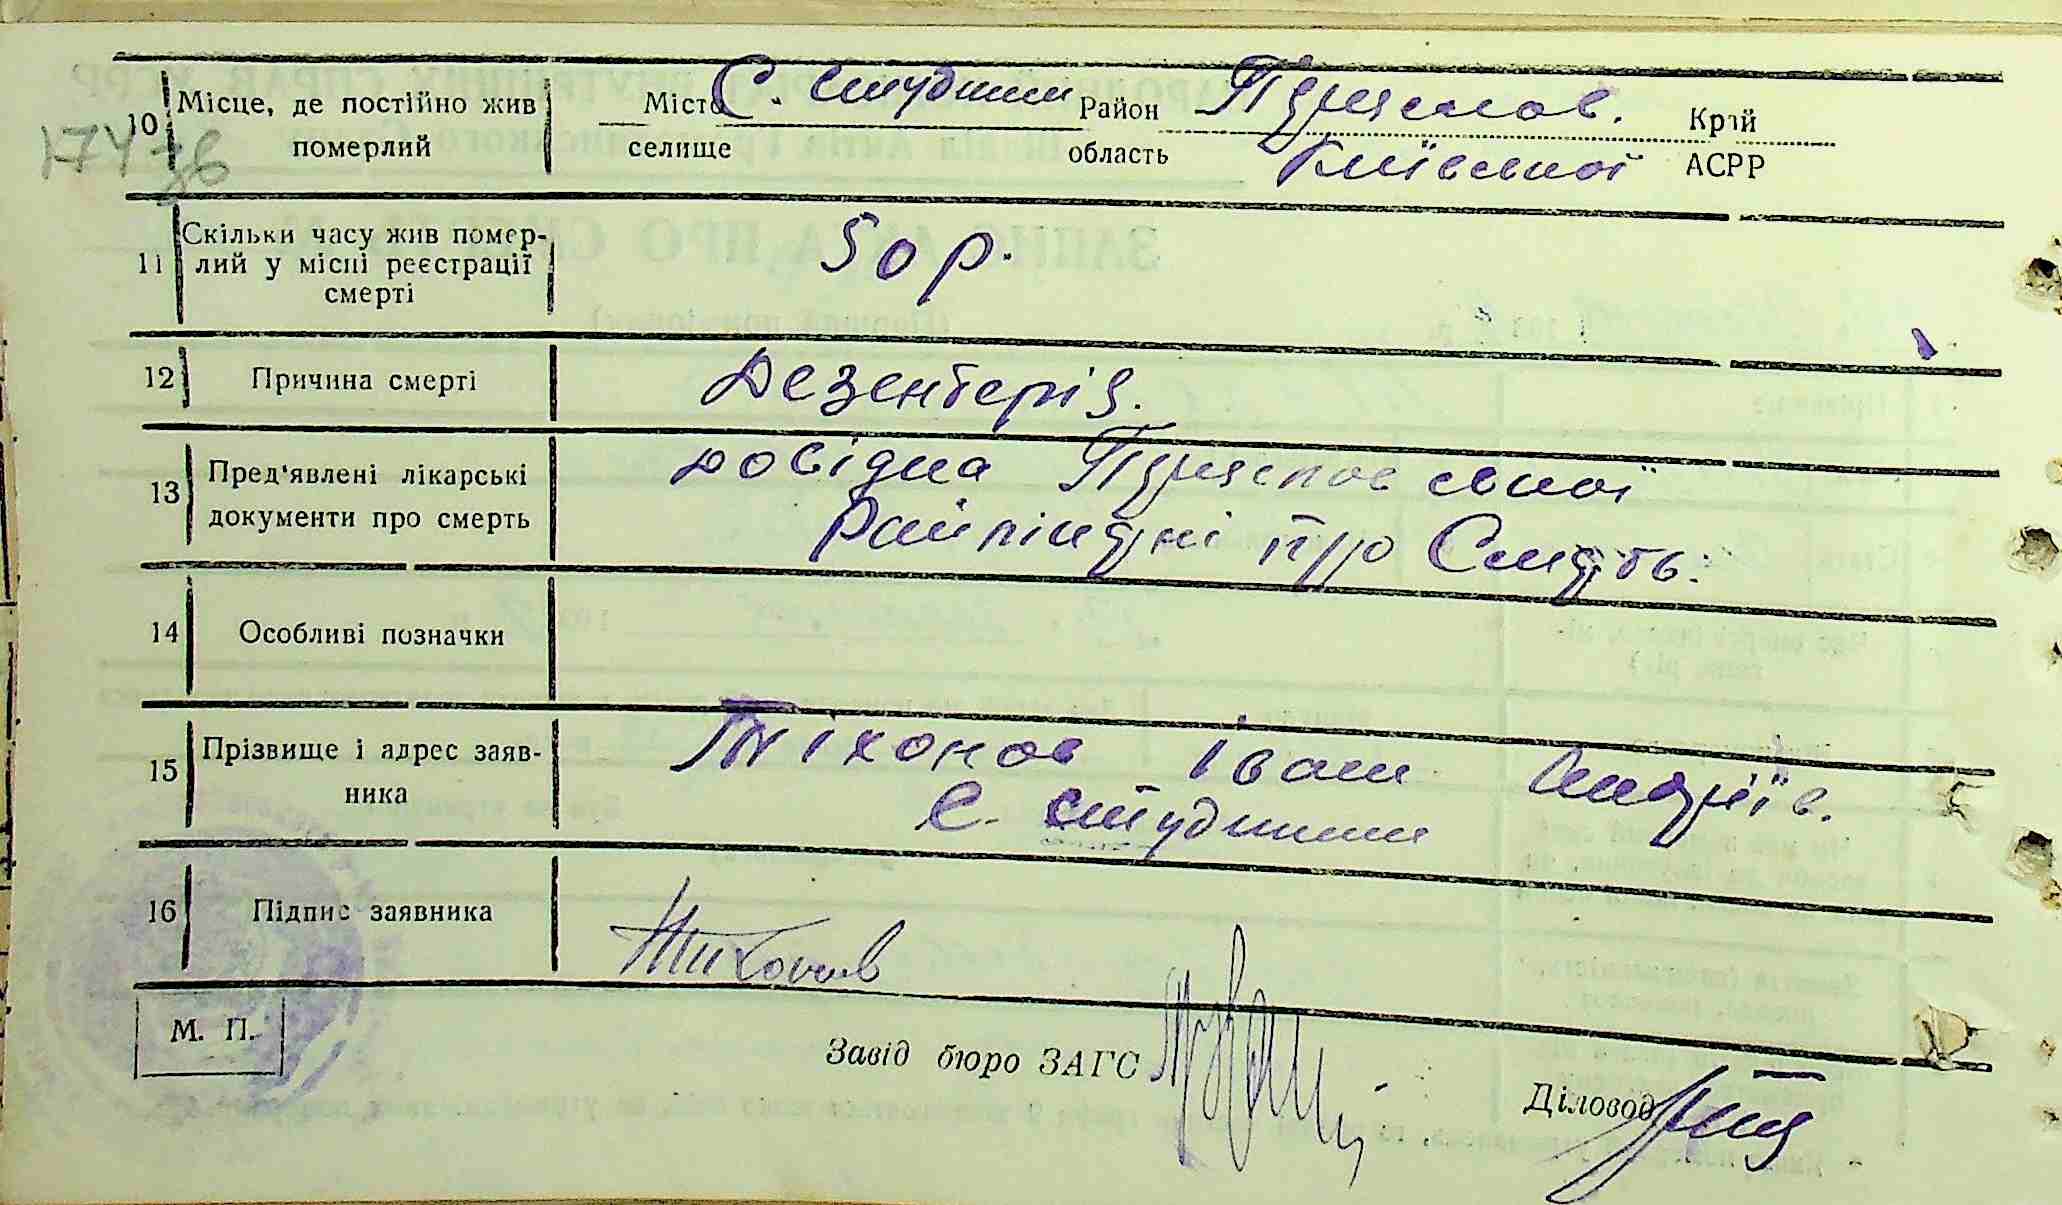 10 Місце, де постійно жив померлий
Місто С. Студники Район Переяслав. Край
селище область Київської АСРР
174 зв
11 Скільки часу жив помер-
лий у місці реєстрації
смерті
50 р.
12 Причина смерті
Дезентерія.
13 Пред'явлені лікарські
документи про смерть
довідка Переяславської
Райлікарні про Смерть.
14 Особливі позначки
15 Прізвище і адрес заяв-
ника
Тіхонов Іван Андріїв.
С. Студники
16 Підпис заявника
Тихонов
М. П.
Завід бюро ЗАГС
Діловод